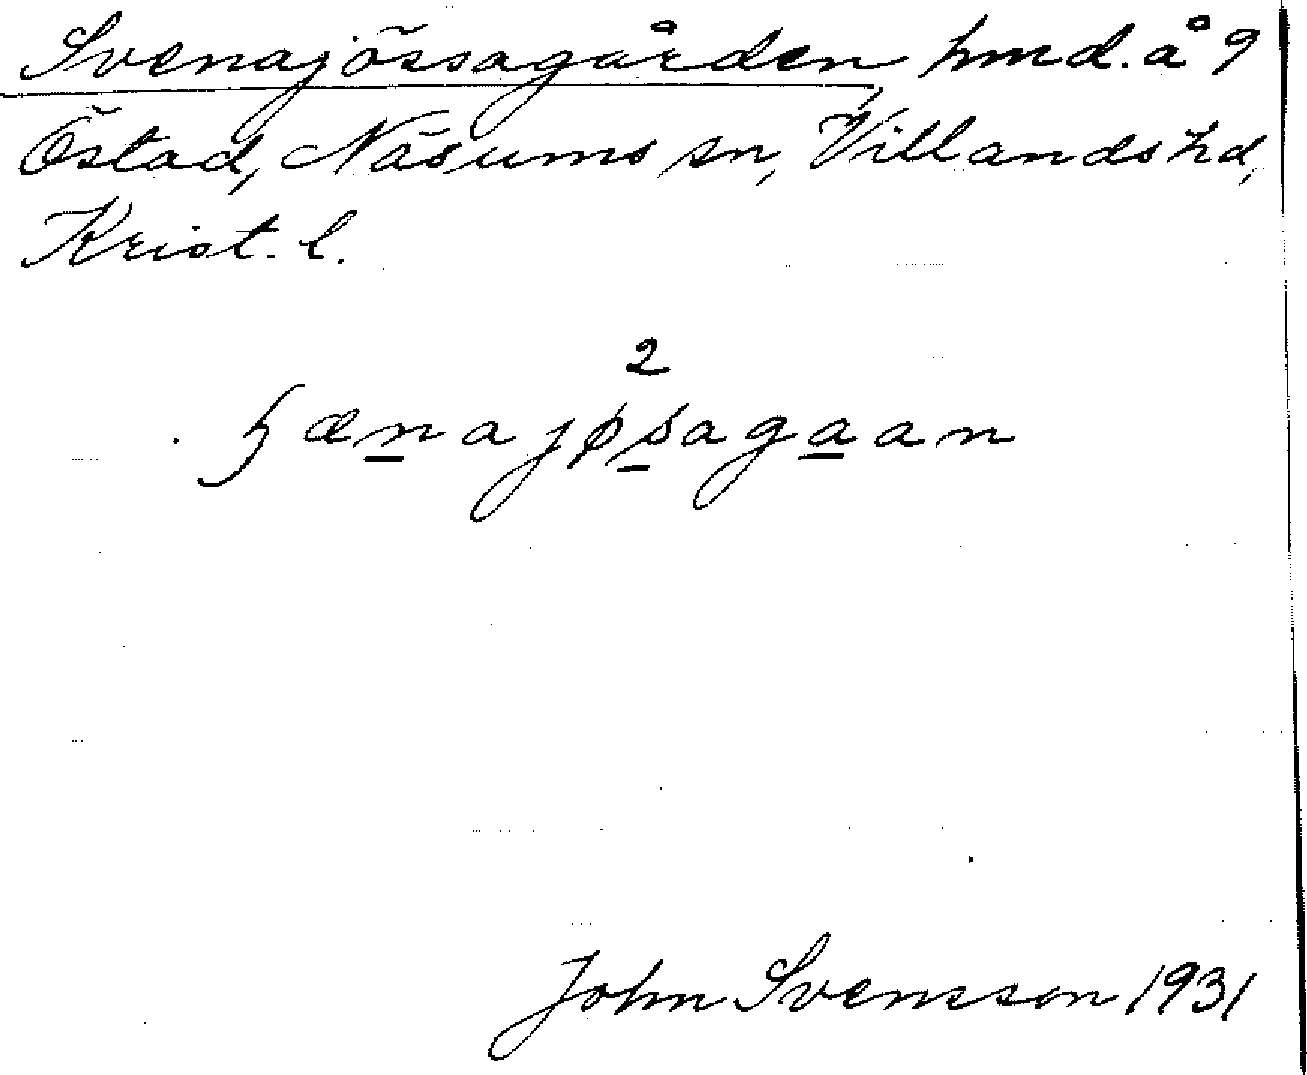 Svenajössagården hmd. å 9
Östad, Näsums sn, Villands hd,
Krist. l.
2
John Svensson 1931